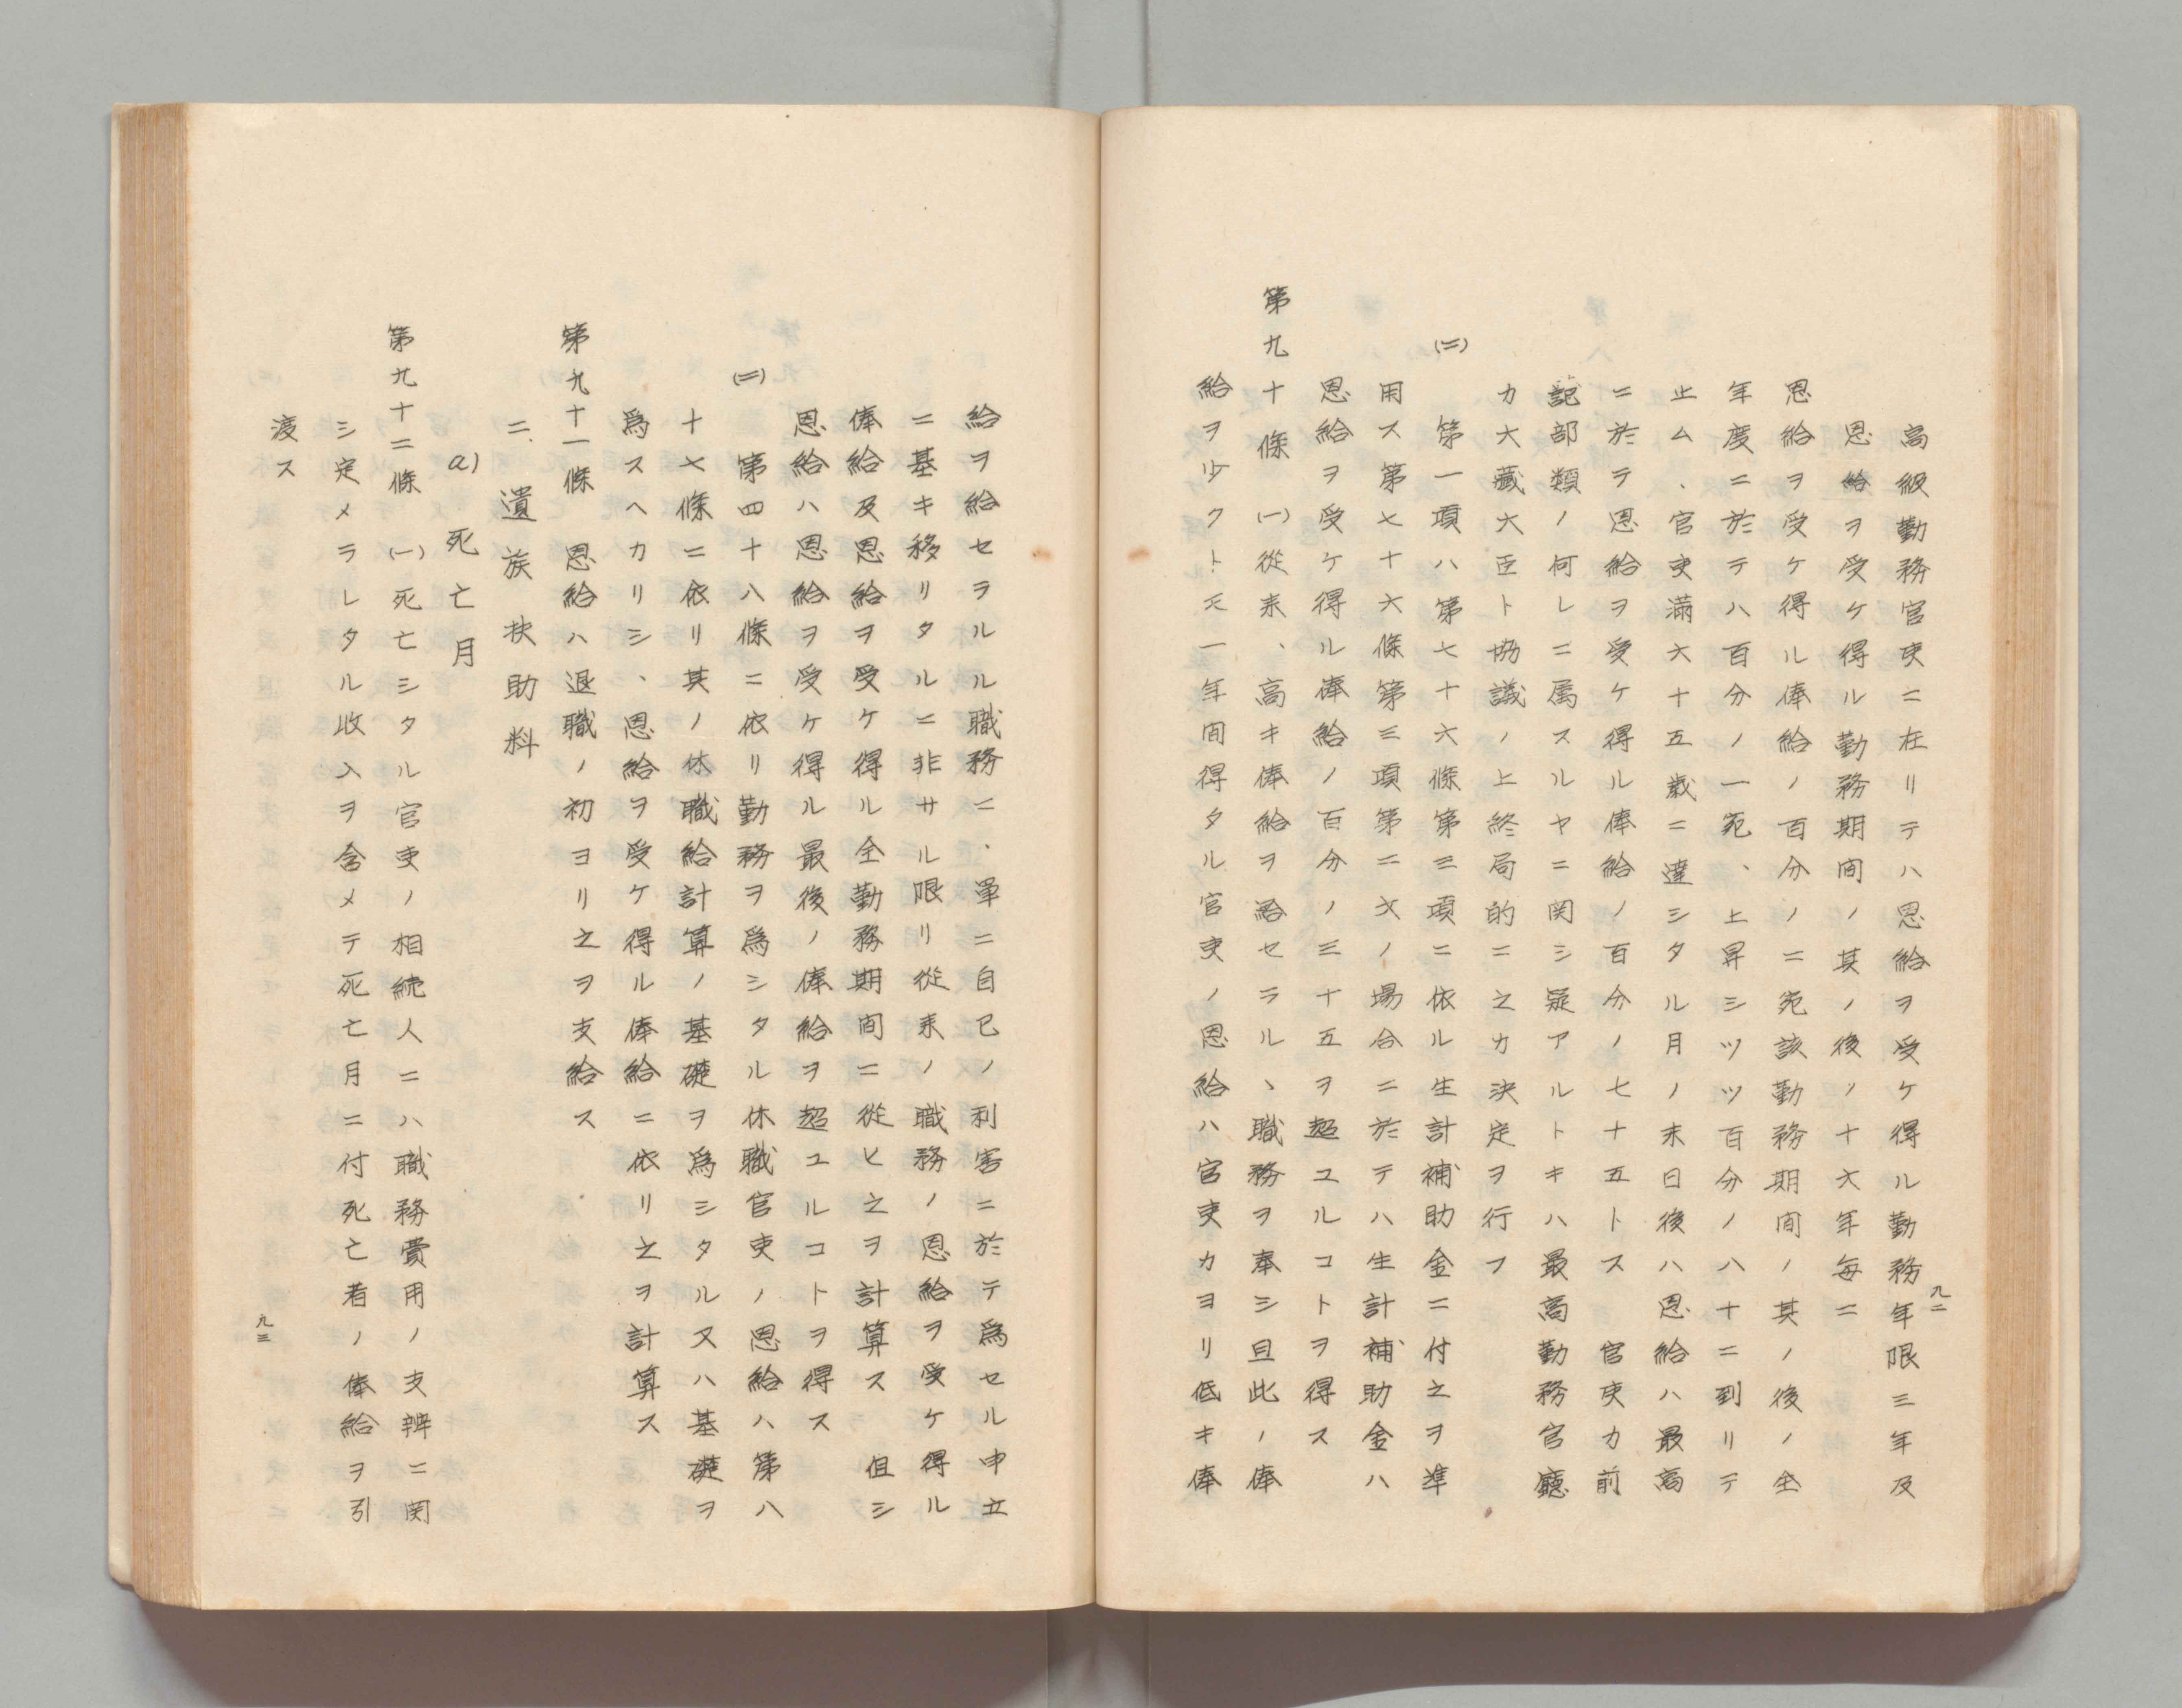 九二
高級勤務官吏ニ在リテハ恩給ヲ受ケ得ル勤務年限三年及
恩給ヲ受ケ得ル勤務期間ノ其ノ後ノ十六年毎ニ
恩給ヲ受ケ得ル俸給ノ百分ノ二宛該勤務期間ノ其ノ後ノ全
年度ニ於テハ百分ノ一宛、上昇シツツ百分ノ八十ニ到リテ
止ム、官吏滿六十五歳ニ達シタル月ノ末日後ハ恩給ハ最高
ニ於テ恩給ヲ受ケ得ル俸給ノ百分ノ七十五トス 官吏カ前
記部類ノ何レニ属スルヤニ関シ疑アルトキハ最高勤務官廳
カ大藏大臣ト協議ノ上終局的ニ之カ決定ヲ行フ
(二) 第一項ハ第七十六條第三項ニ依ル生計補助金ニ付之ヲ準
用ス第七十六條第三項第二文ノ場合ニ於テハ生計補助金ハ
恩給ヲ受ケ得ル俸給ノ百分ノ三十五ヲ超ユルコトヲ得ス
第九十條 (一)從来、高キ俸給ヲ給セラル、職務ヲ奉シ且此ノ俸
給ヲ少クトモ一年間得タル官吏ノ恩給ハ官吏カヨリ低キ俸
給ヲ給セラルル職務ニ、單ニ自己ノ利害ニ於テ爲セル申立
ニ基キ移リタルニ非サル限リ從来ノ職務ノ恩給ヲ受ケ得ル
俸給及恩給ヲ受ケ得ル全勤務期間ニ從ヒ之ヲ計算ス 但シ
恩給ハ恩給ヲ受ケ得ル最後ノ俸給ヲ超ユルコトヲ得ス
(二) 第四十八條ニ依リ勤務ヲ爲シタル休職官吏ノ恩給ハ第八
十七條ニ依リ其ノ休職給計算ノ基礎ヲ爲シタル又ハ基礎ヲ
爲スヘカリシ、恩給ヲ受ケ得ル俸給ニ依リ之ヲ計算ス
第九十一條 恩給ハ退職ノ初ヨリ之ヲ支給ス
二、遺族扶助料
a) 死亡月
第九十二條 (一)死亡シタル官吏ノ相続人ニハ職務費用ノ支辨ニ関
シ定メラレタル收入ヲ含メテ死亡月ニ付死亡者ノ俸給ヲ引
渡ス
九三